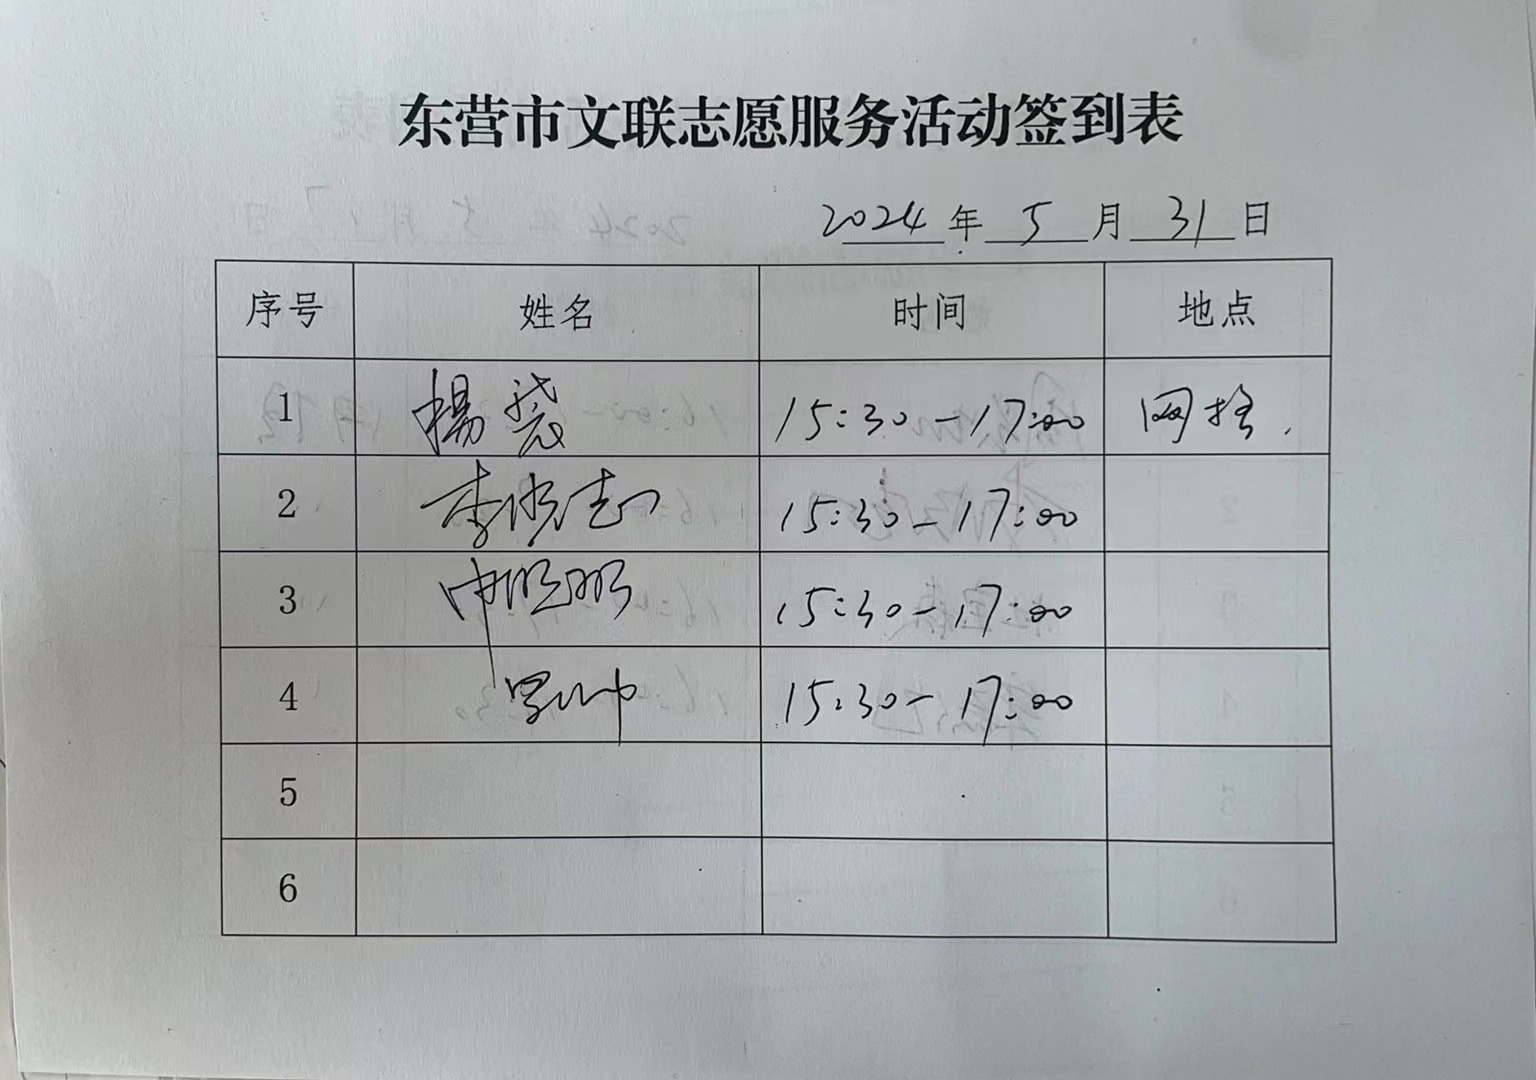 东营市文联志愿服务活动签到表
2024年5月31日
序号 姓名 时间 地点
1 15:30-17:00 网格
2 李 志 15:30-17:00
3 15:30-17:00
4 15:30-17:00
5
6